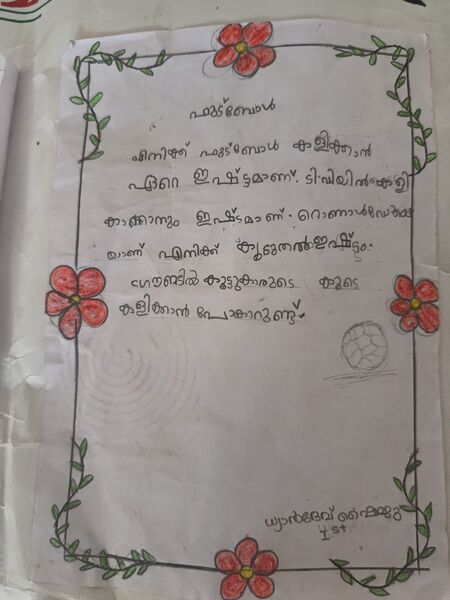 ഫുട്ബോൾ
എനിക്ക് ഫുട്ബോൾ കളിക്കാൻ
ഏറെ ഇഷ്ട്ടമാണ്. ടി.വിയിൽ കളി
കാണാനും ഇഷ്ടമാണ്. റൊണാൾഡോ
യാണ് എനിക്ക് കൂടുതൽ ഇഷ്ട്ടം.
ഗ്രൗണ്ടിൽ കൂട്ടുകാരുടെ കൂടെ
കളിക്കാൻ പോകാറുണ്ട്.
ധ്യാൻദേവ് ഷൈജു
I st